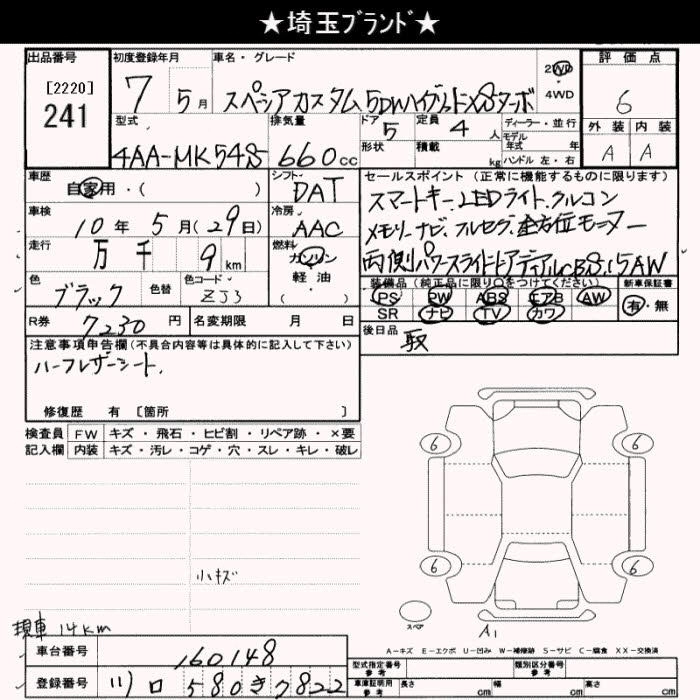 ★埼玉ブランド★
出品番号 初度登録年月 車名・グレード 評価点
[2220]
241
7 5月 スペーシアカスタム 5DWハイブリッドXSターボ 2WD・4WD 6
型式 排気量 ドア 定員 ディーラー・並行 外装 内装
4AA-MK54S 660cc 5 4人 モデル年式 年 A A
形状 積載 kg ハンドル 左・右
車歴 自家用・( ) シフト DAT
セールスポイント(正常に機能するものに限ります)
スマートキー.LEDライト.クルコン
車検 10年5月(29日) 冷房 AAC
メモリーナビ.フルセグ.全方位モニター
走行 万 千 9km 燃料 ガソリン 軽・油 ( )
両側パワースライドドア
色 ブラック 色替 色コード ZJ3
装備品(純正品に限り○をつけてください) 新車保証書
PS PW ABS エアB AW 有・無
SR ナビ TV カワ
R券 7230円 名変期限 月 日
後日品 取
注意事項申告欄(不具合内容等は具体的に記入して下さい)
ハーフレザーシート.
修復歴 有 [箇所 ]
検査員 FW キズ・飛石・ヒビ割・リペア跡・×要
記入欄 内装 キズ・汚レ・コゲ・穴・スレ・キレ・破レ
6 6
6 6
小キズ
スペア
A1
現車 14km
A-キズ E-エクボ U-凹み W-補修跡 S-サビ C-腐食 XX-交換済
車台番号 160148
型式指定番号 参考 類別区分番号 参考
登録番号 580 き 7822
車庫証明用 参考 長さ cm 幅 cm 高さ cm